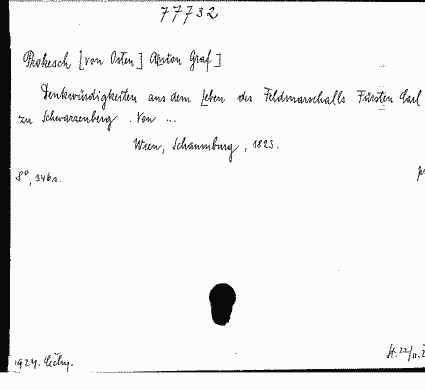 77732
Prokesch [von Osten] Anton Graf]
Denkwürdigkeiten aus dem Leben des Feldmarschalls Fürsten Carl
zu Schwarzenberg. Von ...
Wien, Schaumburg, 1823.
8°, 346 s.
1924.